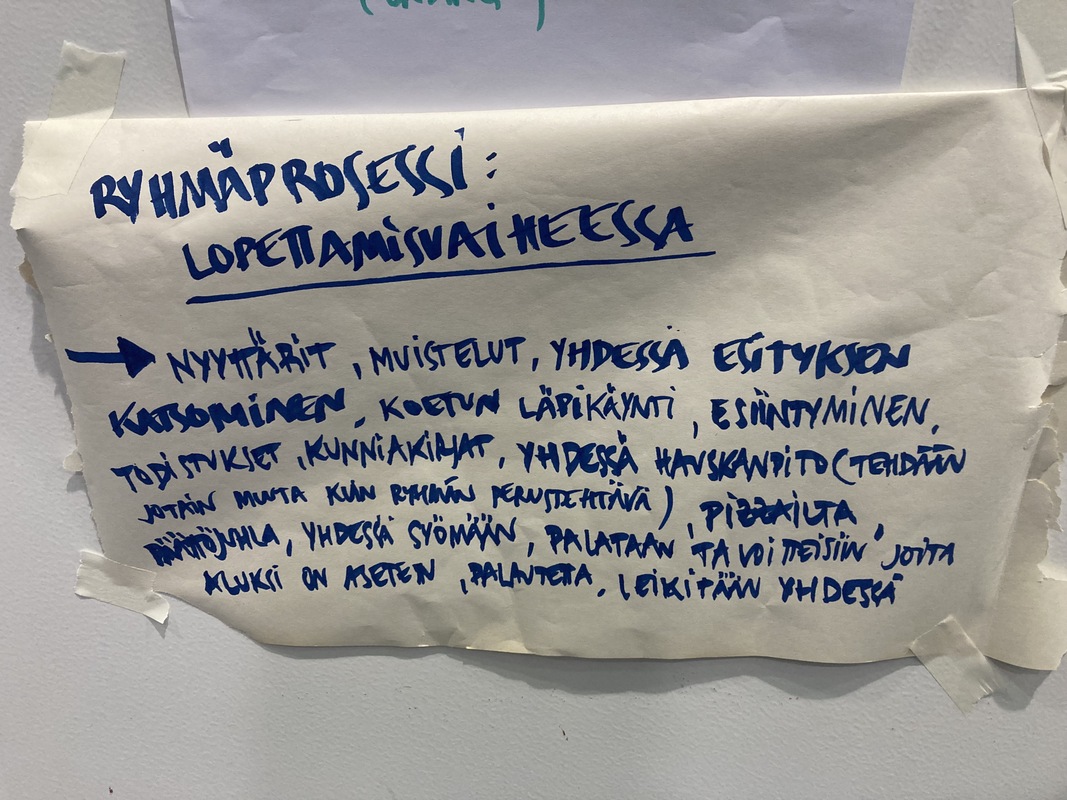 RYHMÄPROSESSI:
LOPETTAMISVAIHEESSA
→ NYYTTÄRIT, MUISTELUT, YHDESSÄ ESITYKSEN
KATSOMINEN, KOETUN LÄPIKÄYNTI, ESIINTYMINEN,
TODISTUKSET, KUNNIAKIRJAT, YHDESSÄ HAUSKANPITO (TEHDÄÄN
JOTAIN MUUTA KUIN RYHMÄN PERUSTEHTÄVÄ), PIZZAILTA,
PÄÄTÖJUHLA, YHDESSÄ SYÖMÄÄN, PALATAAN "TAVOITTEISIIN" JOITA
ALUKSI ON ASETETTU, PALAUTETTA, LEIKITÄÄN YHDESSÄ